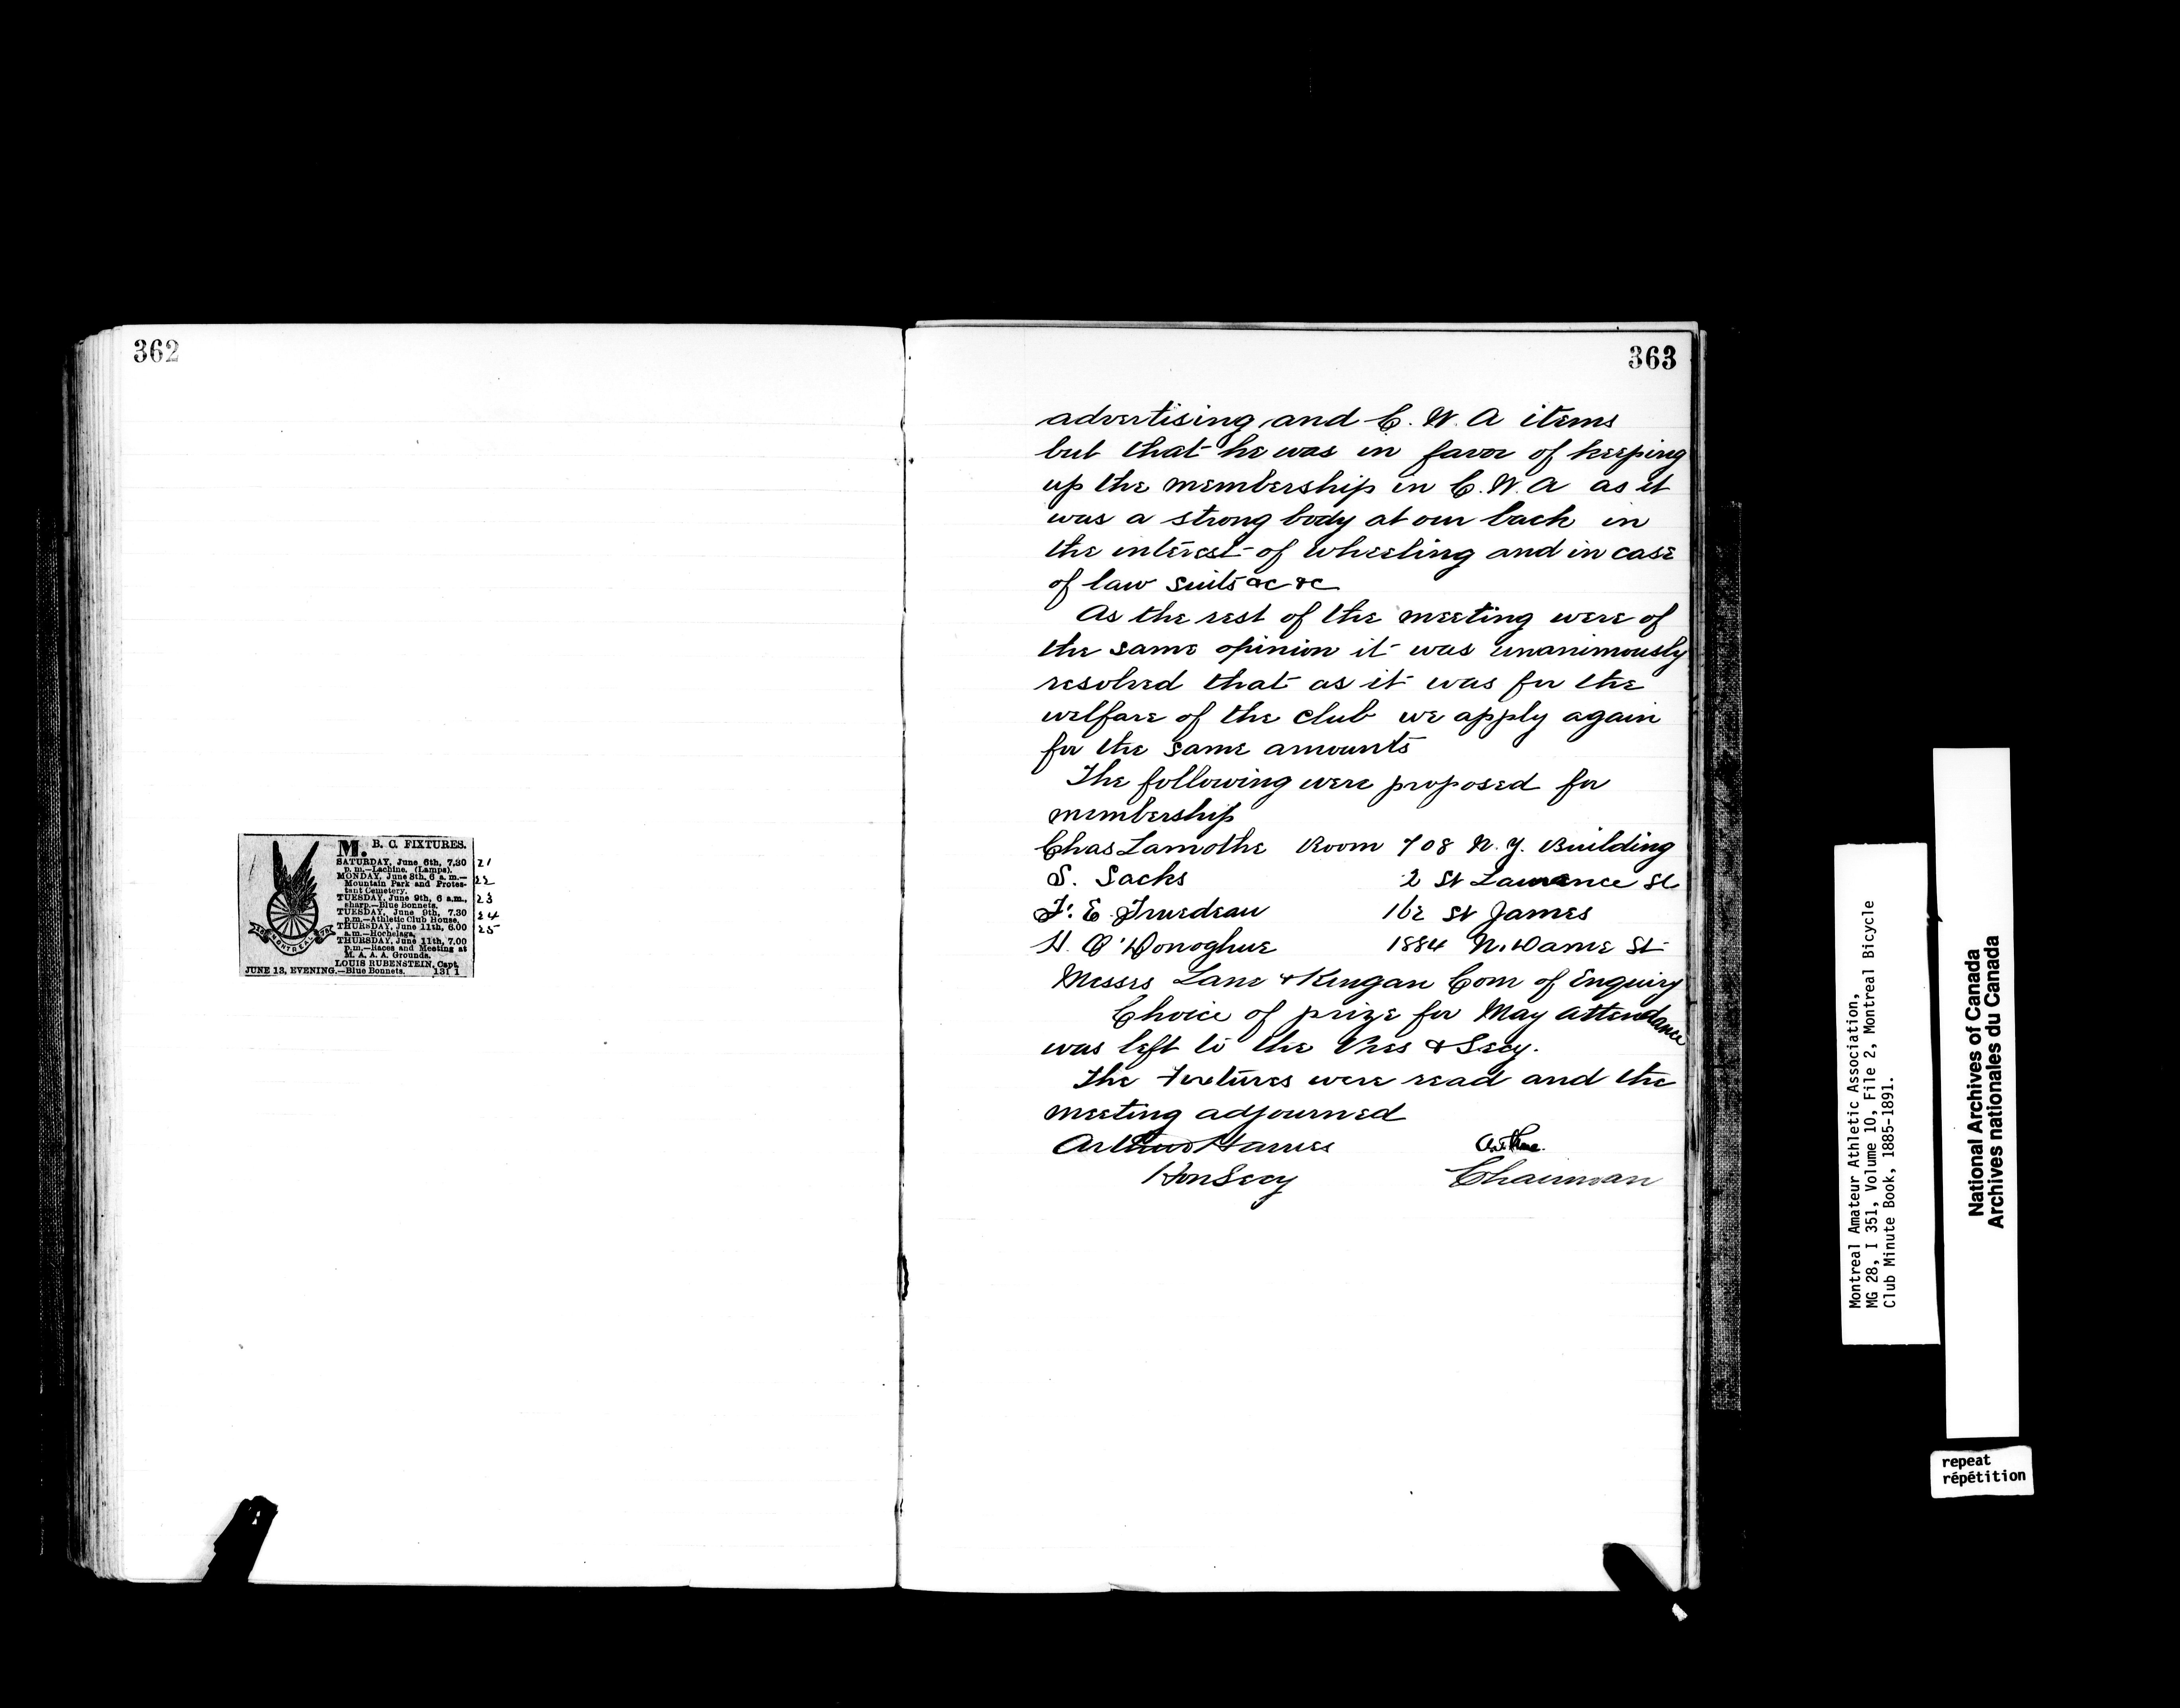 362
M. B. C. FIXTURES.
SATURDAY, June 6th, 7.30
p. m.—Lachine. (Lamps).
MONDAY, June 8th, 6 a. m.—
Mountain Park and Protes-
tant Cemetery.
TUESDAY, June 9th, 6 a.m.,
sharp.—Blue Bonnets.
TUESDAY, June 9th, 7.30
p.m.—Athletic Club House.
THURSDAY, June 11th, 6.00
a.m.—Hochelaga.
THURSDAY, June 11th, 7.00
p.m.—Races and Meeting at
M. A. A. A. Grounds.
LOUIS RUBENSTEIN, Capt.
JUNE 13, EVENING.—Blue Bonnets. 131 1
MONTREAL
21
22
23
24
25
363
advertising and C. W. A items
but that he was in favor of keeping
up the membership in C. W. A as it
was a strong body at our back in
the interest of wheeling and in case
of law suits &c &c
As the rest of the meeting were of
the same opinion it was unanimously
resolved that as it was for the
welfare of the club we apply again
for the same amounts
The following were proposed for
membership
Chas Lamothe Room 708 N. Y. Building
S. Sacks 2 St Lawrence St
F. E. Truedeau 162 St James
H. O'Donoghue 1884 N. Dame St
Messrs Lane & Kengan Com of Enquiry
Choice of prize for May attendance
was left to the Pres & Secy.
The fixtures were read and the
meeting adjourned
Arthur Harries
Hon Secy Chairman
Montreal Amateur Athletic Association,
MG 28, I 351, Volume 10, File 2, Montreal Bicycle
Club Minute Book, 1885-1891.
National Archives of Canada
Archives nationales du Canada
repeat
répétition